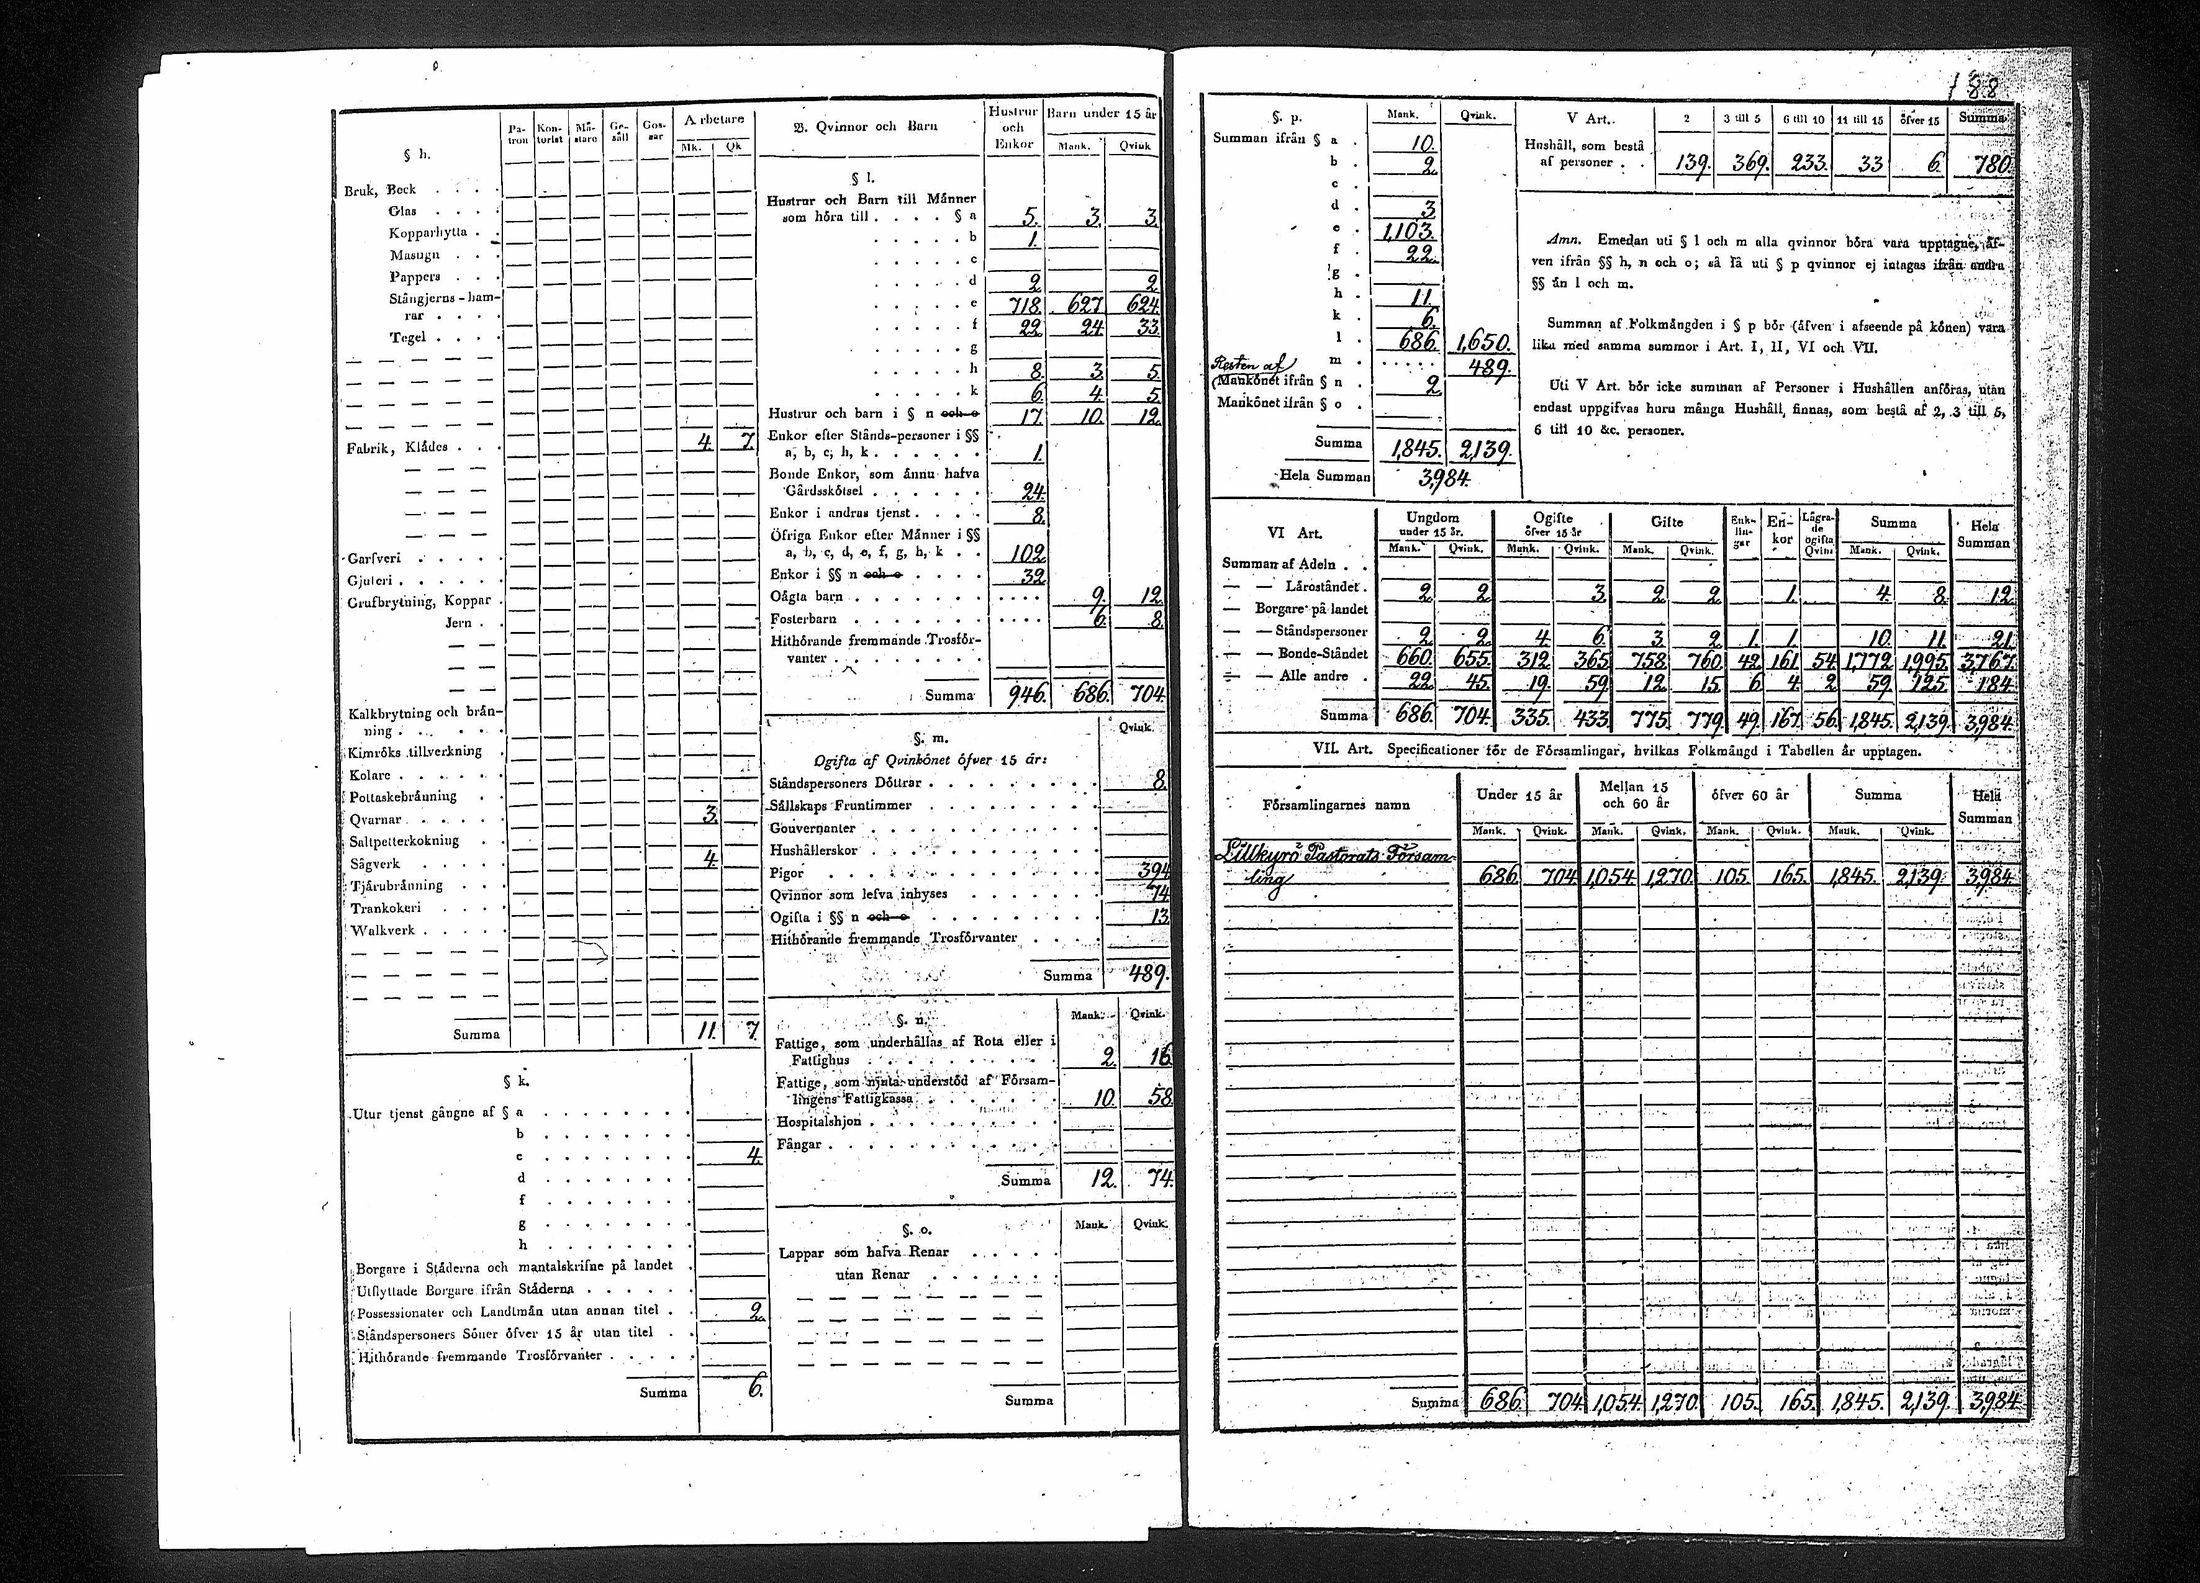 188
§ h. Patron Kontorist Mästare Gesäll Gossar Arbetare
Mk. Qk
Bruk, Beck . . . .
Glas . . . .
Kopparhytta . .
Masugn . . .
Pappers . . .
Stångjerns-hamrar . . . .
Tegel . . . .
Fabrik, Klädes . . . 4. 7.
Garfveri . . . .
Gjuteri . . . . .
Grufbrytning, Koppar .
Jern . .
Kalkbrytning och brän-
ning . . . . . .
Kimröks tillverkning .
Kolare . . . . .
Pottaskebränning . .
Qvarnar . . . . . 3.
Saltpetterkokning . .
Sågverk . . . . 4.
Tjärubränning . . .
Trankokeri . . . .
Walkverk . . . . .
Summa 11. 7.
§ k.
Utur tjenst gångne af § a . . . . . . .
b . . . . . . .
c . . . . . . . 4.
d . . . . . . .
f . . . . . . .
g . . . . . . .
h . . . . . . .
Borgare i Städerna och mantalskrifne på landet .
Utflyttade Borgare ifrån Städerna . . . . .
Possessionater och Landtmän utan annan titel . . 2.
Ståndspersoners Söner öfver 15 år utan titel . .
Hithörande fremmande Trosförvanter . . . . .
Summa 6.
B. Qvinnor och Barn Hustrur och Enkor Barn under 15 år
Mank. Qvink
§ l.
Hustrur och Barn till Männer
som höra till . . . . § a 5. 3. 3.
. . . . . b 1.
. . . . . c
. . . . . d 2. 2.
. . . . . e 718. 627. 624.
. . . . . f 22. 24. 33.
. . . . . g
. . . . . h 8. 3. 5.
. . . . . k 6. 4. 5.
Hustrur och barn i § n och o 17. 10. 12.
Enkor efter Stånds-personer i §§
a, b, c, h, k . . . . . . 1.
Bonde Enkor, som ännu hafva
Gårdsskötsel . . . . . . 24.
Enkor i andras tjenst . . . . 8.
Öfriga Enkor efter Männer i §§
a, b, c, d, e, f, g, h, k . . 102.
Enkor i §§ n och o . . . . 32.
Oägta barn . . . . . . . . . . . 9. 12.
Fosterbarn . . . . . . . . . . . 6. 8.
Hithörande fremmande Trosför-
vanter . . . . . . . .
Summa 946. 686. 704.
§. m. Qvink.
Ogifta af Qvinkönet öfver 15 år:
Ståndspersoners Döttrar . . . . . . . . . 8.
Sällskaps Fruntimmer . . . . . . . . .
Gouvernanter . . . . . . . . . . .
Hushållerskor . . . . . . . . . . .
Pigor . . . . . . . . . . . . 394
Qvinnor som lefva inhyses . . . . . . . 74.
Ogifta i §§ n och o . . . . . . . . . 13.
Hithörande fremmande Trosförvanter . . . .
Summa 489.
§. n. Mank. Qvink.
Fattige, som underhållas af Rota eller i
Fattighus . . . . . . . . . 2. 16
Fattige, som njuta understöd af Försam-
lingens Fattigkassa . . . . . . . 10. 58.
Hospitalshjon . . . . . . . . . .
Fångar . . . . . . . . . . . .
Summa 12. 74.
§. o. Mank. Qvink.
Lappar som hafva Renar . . . . .
utan Renar . . . . . . .
Summa
§. p. Mank. Qvink.
Summan ifrån § a . 10.
b . 2.
c .
d . 3.
e . 1,103.
f . 22.
g .
h . 11.
k . 6.
l . 686. 1,650.
m . . . . . . 489.
Resten af
(Mankönet ifrån § n . 2.
Mankönet ifrån § o .
Summa 1,845. 2,139.
Hela Summan 3,984.
V Art. 2 3 till 5 6 till 10 11 till 15 öfver 15 Summa
Hushåll, som bestå
af personer . . 139. 369. 233. 33 6. 780.
Anm. Emedan uti § l och m alla qvinnor böra vara upptagne, äf-
ven ifrån §§ h, n och o; så få uti § p qvinnor ej intagas ifrån andra
§§ än l och m.
Summan af Folkmängden i § p bör (äfven i afseende på könen) vara
lika med samma summor i Art. I, II, VI och VII.
Uti V Art. bör icke summan af Personer i Hushållen anföras, utan
endast uppgifvas huru många Hushåll finnas, som bestå af 2, 3 till 5,
6 till 10 &c. personer.
VI Art. Ungdom under 15 år. Ogifte öfver 15 år Gifte Enklingar Enkor Lägrade ogifta Qvin: Summa Hela Summan
Mank. Qvink. Mank. Qvink. Mank. Qvink. Mank. Qvink.
Summan af Adeln . .
— — Läroståndet . 2. 2. 3. 2. 2. 1. 4. 8. 12.
— Borgare på landet
— — Ståndspersoner 2. 2. 4. 6. 3. 2. 1. 1. 10. 11. 21.
— — Bonde-Ståndet 660. 655. 312. 365. 758. 760. 42. 161. 54. 1,772. 1,995. 3,767.
— — Alle andre . 22. 45. 19. 59. 12. 15. 6. 4. 2. 59. 125. 184.
Summa 686. 704. 335. 433. 775. 779. 49. 167. 56. 1,845. 2,139. 3,984.
VII. Art. Specificationer för de Församlingar, hvilkas Folkmängd i Tabellen är upptagen.
Församlingarnes namn Under 15 år Mellan 15 och 60 år öfver 60 år Summa Hela Summan
Mank. Qvink. Mank. Qvink. Mank. Qvink. Mank. Qvink.
Lillkyro Pastorats Församling
686. 704. 1,054. 1,270. 105. 165. 1,845. 2,139. 3,984.
Summa 686. 704. 1,054. 1,270. 105. 165. 1,845. 2,139. 3,984.